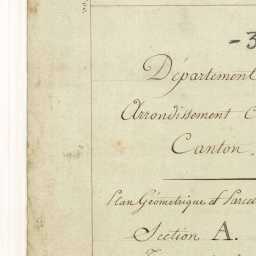 -3
Département
Arrondissement
Canton.
Plan Géométrique et Parcel
Section A.